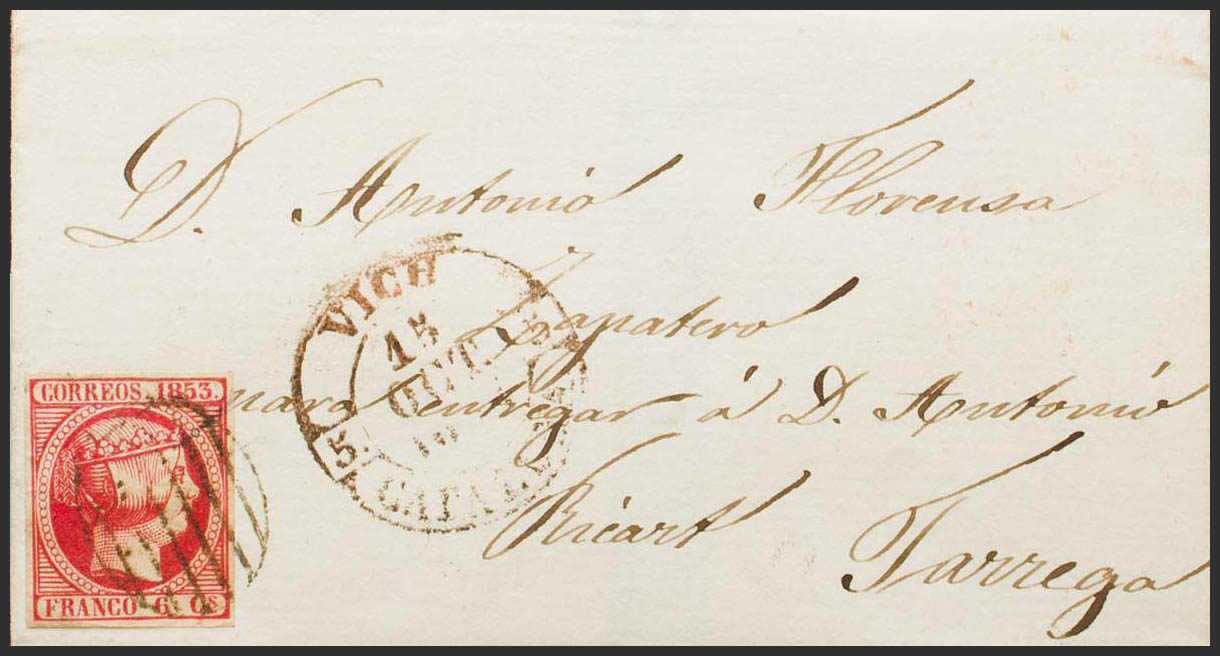 D. Antonio Florensa
Zapatero
para entregar á D. Antonio
Ricart Tarrega
VICH
15
OCT.
CATAL
CORREOS. 1853.
FRANCO 6 Cs